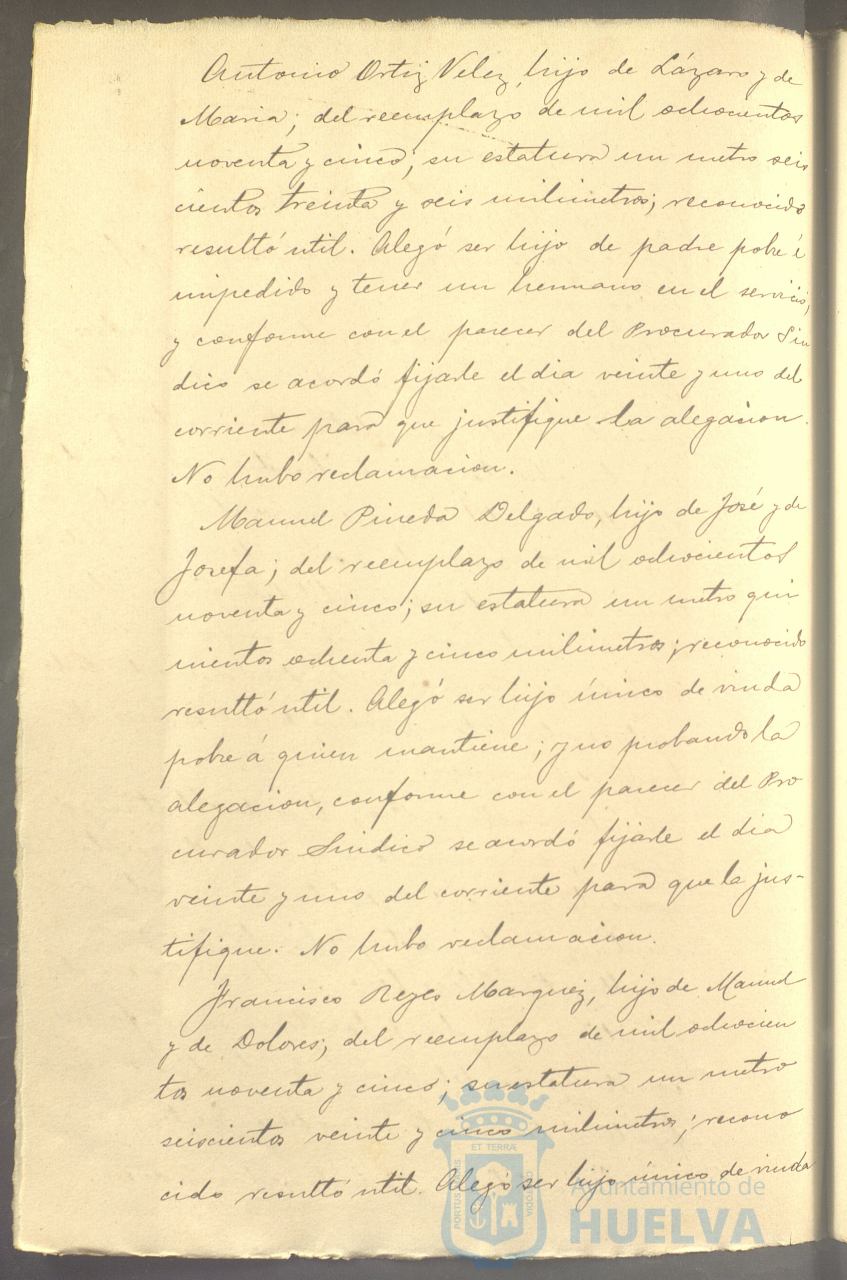 Antonio Ortiz Velez, hijo de Lázaro y de
Maria; del reemplazo de mil ochocientos
noventa y cinco; su estatura un metro seis
cientos treinta y seis milimetros; reconocido
resultó util. Alegó ser hijo de padre pobre é
impedido y tener un hermano en el servicio;
y conforme con el parecer del Procurador Sin
dico se acordó fijarle el dia veinte y uno del
corriente para que justifique la alegacion.
No hubo reclamacion.
Manuel Pineda Delgado, hijo de José y de
Josefa; del reemplazo de mil ochocientos
noventa y cinco; su estatura un metro qui
nientos ochenta y cinco milimetros; reconocido
resultó util. Alegó ser hijo único de viuda
pobre á quien mantiene; y no probando la
alegacion, conforme con el parecer del Pro
curador Sindico se acordó fijarle el dia
veinte y uno del corriente para que la jus-
tifique. No hubo reclamacion.
Francisco Reyes Marquez, hijo de Manuel
y de Dolores; del reemplazo de mil ochocien
tos noventa y cinco; su estatura un metro
seiscientos veinte y cinco milimetros; recono
cido resultó util. Alegó ser hijo único de viuda
ET TERRÆ
PORTUS MARIS
CUSTODIA
Ayuntamiento de
HUELVA